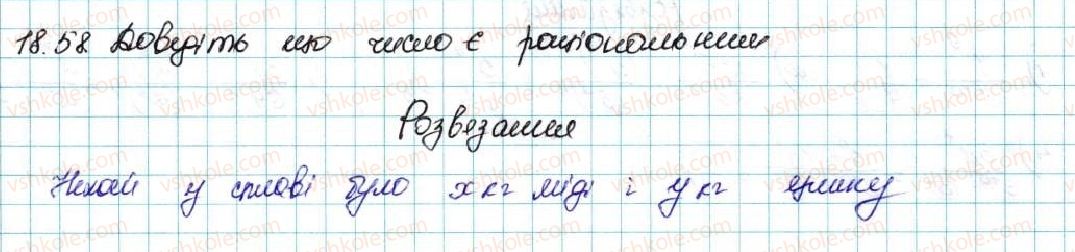 18.58 Доведіть що число є раціональним
Розвязання
Нехай у сплаві було x кг міді і y кг цинку